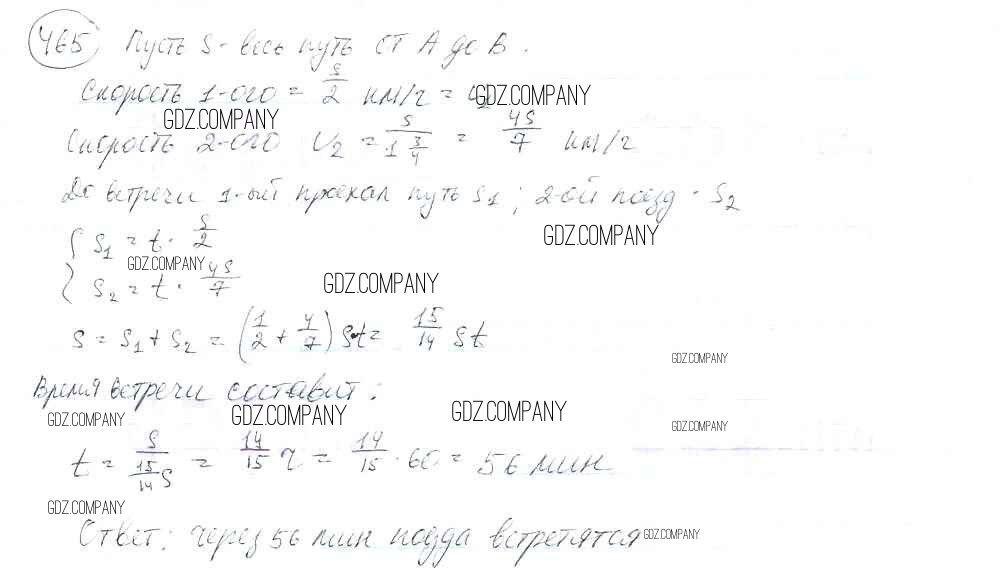 465 Пусть S - весь путь от A до B.
Скорость 1-ого = S/2 км/ч = GDZ.COMPANY
GDZ.COMPANY
Скорость 2-ого V₂ = S/(1 3/4) = 4S/7 км/ч
До встречи 1-ый проехал путь S₁; 2-ой поезд - S₂
{ S₁ = t · S/2
GDZ.COMPANY
GDZ.COMPANY
S₂ = t · 4S/7
GDZ.COMPANY
S = S₁ + S₂ = (1/2 + 4/7) St = 15/14 St
GDZ.COMPANY
Время встречи составит:
GDZ.COMPANY GDZ.COMPANY GDZ.COMPANY GDZ.COMPANY
t = S/(15/14 S) = 14/15 ч = 14/15 · 60 = 56 мин
GDZ.COMPANY
Ответ: через 56 мин поезда встретятся GDZ.COMPANY